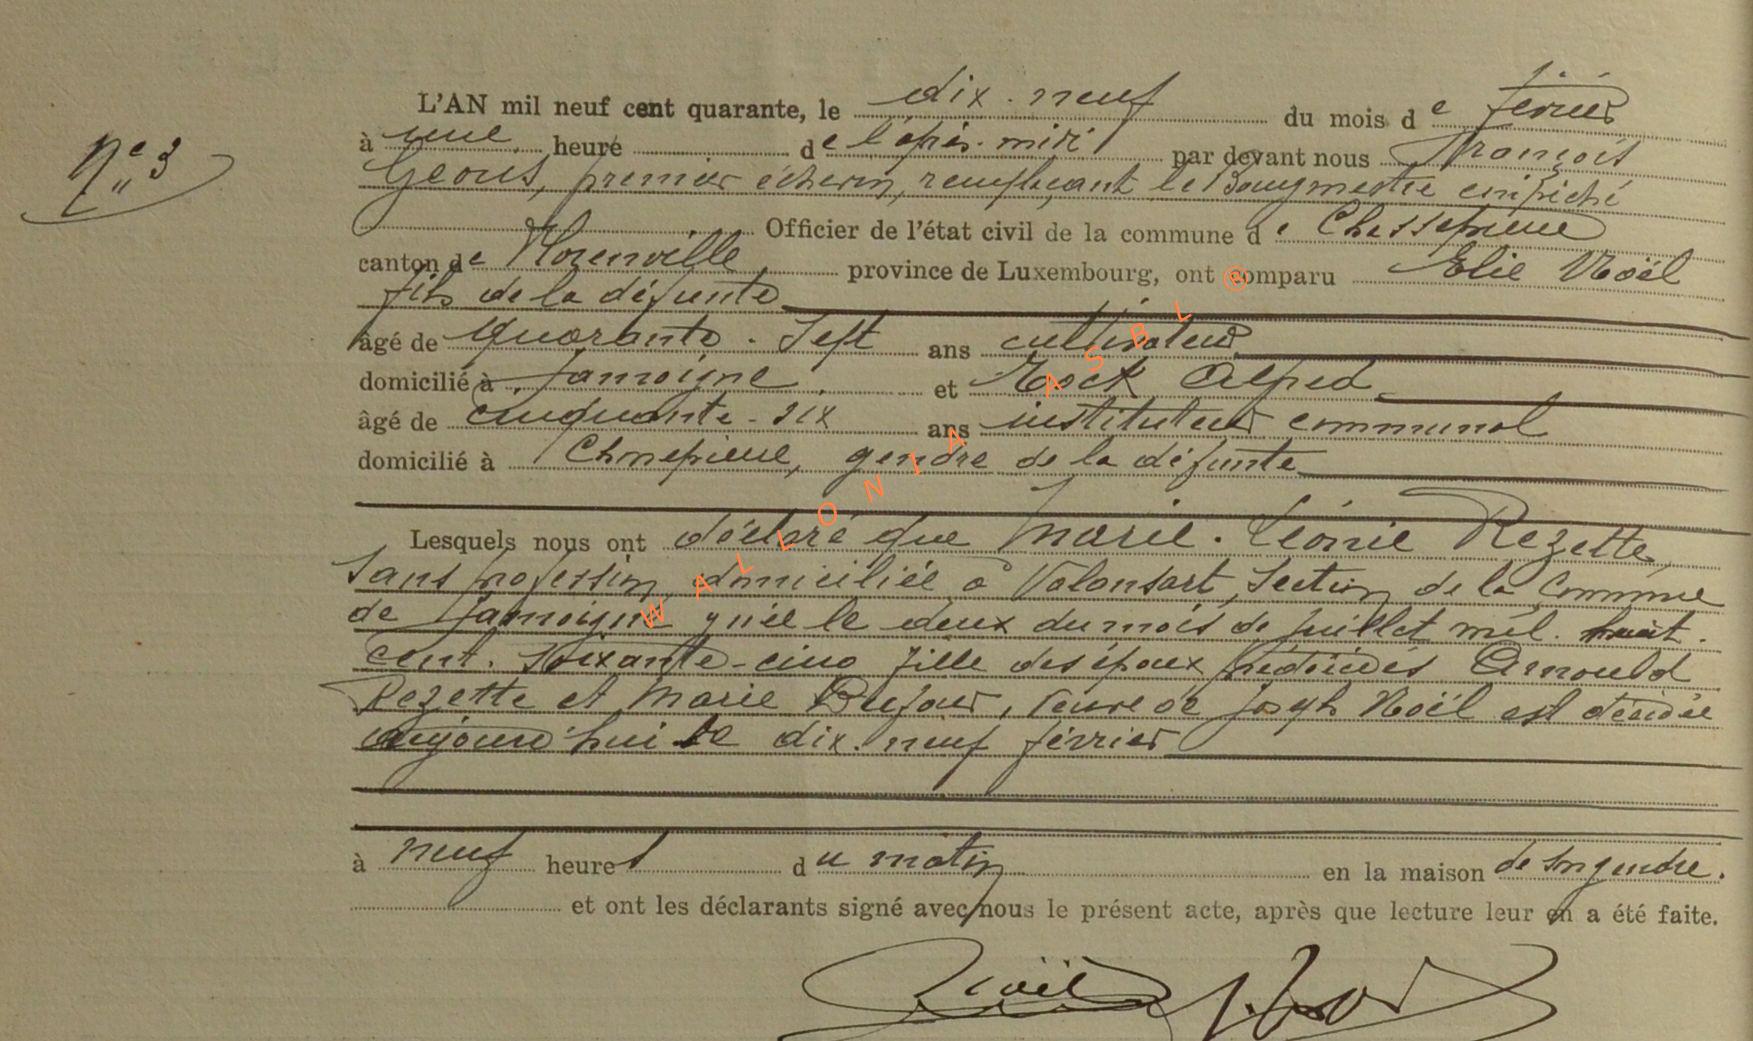 L'AN mil neuf cent quarante, le dix-neuf du mois de février
N° 3
à une heure de l'après-midi par devant nous François
Géours, premier échevin, remplaçant le Bourgmestre empêché
Officier de l'état civil de la commune de Chassepierre
canton de Florenville province de Luxembourg, ont comparu Elie Noël
fils de la défunte
âgé de quarante-sept ans cultivateur
domicilié à Jamoigne et Hock Alfred
âgé de cinquante-six ans instituteur communal
domicilié à Chassepierre, gendre de la défunte
Lesquels nous ont déclaré que Marie-Léonie Rezette
sans profession, domiciliée à Valansart, Section de la Commune
de Jamoigne y née le deux du mois de juillet mil-huit-
cent-soixante-cinq fille des époux prédécédés Arnould
Rezette et Marie Dufour, veuve de Joseph Noël est décédée
aujourd'hui le dix-neuf février
à neuf heures du matin en la maison de son gendre.
et ont les déclarants signé avec nous le présent acte, après que lecture leur en a été faite.
Noël
© WALLONIA ASBL